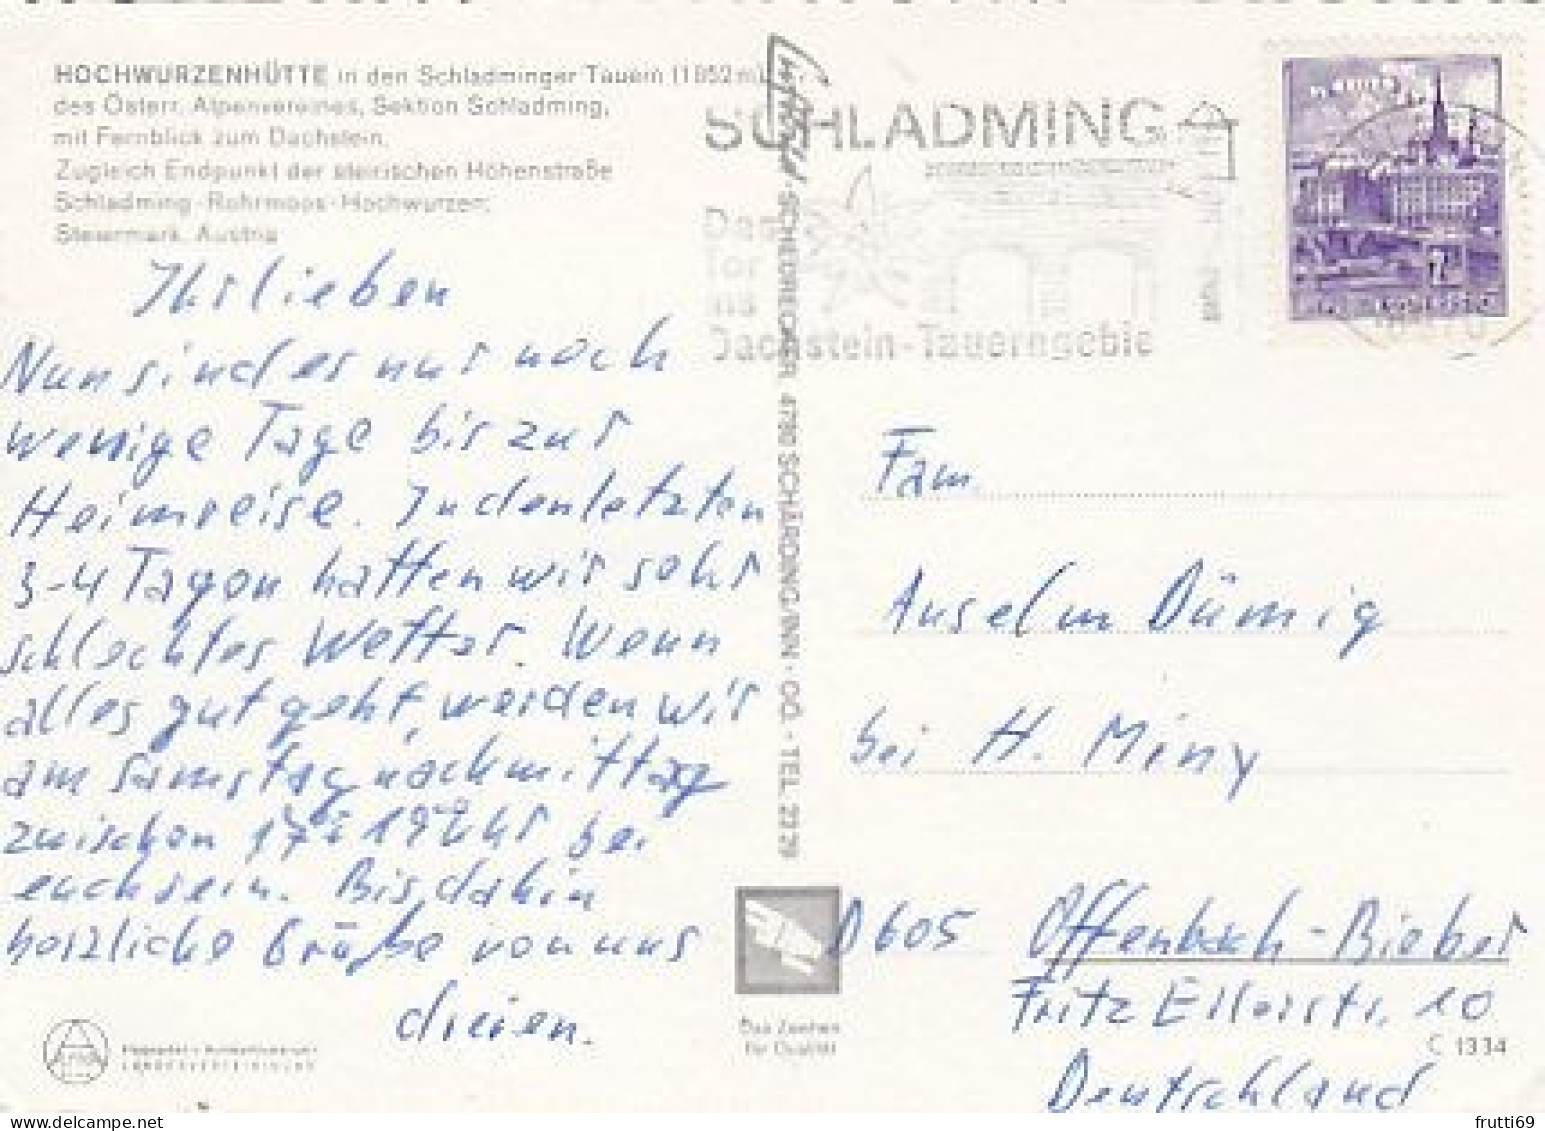 HOCHWURZENHÜTTE in den Schladminger Tauern (1852 m)
des Österr. Alpenvereines, Sektion Schladming,
mit Fernblick zum Dachstein.
Zugleich Endpunkt der steirischen Höhenstraße
Schladming-Rohrmoos-Hochwurzen;
Steiermark, Austria
Ihr lieben
Nun sind es nur noch
wenige Tage bis zur
Heimreise. In den letzten
3-4 Tagen hatten wir sehr
schlechtes Wetter. Wenn
alles gut geht, werden wir
am Samstag nachmittag
zwischen 17 19 Uhr bei
euch sein. Bis dahin
herzliche Grüße von uns
dreien.
LANDESVERTEIDIGUNG
SCHLADMING
Das
Tor
ins
Dachstein-Tauerngebie
SCHIEDRECKER, 4780 SCHÄRDING/INN · OÖ. · TEL. 2279
Das Zeichen
für Qualität
2
Fam.
Anselm Dümig
bei H. Miny
D 605 Offenbach-Bieber
Fritz Ellerstr. 10
C 1334
Deutschland
frutti69